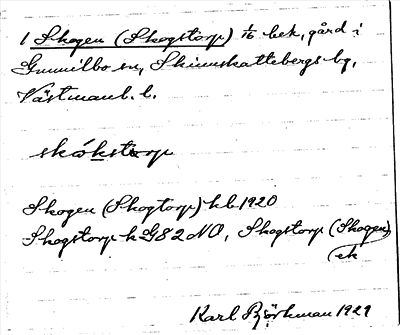 1 Skogen (Skogstorp) 1/16 bek. gård i
Gunnilbo sn, Skinnskattebergs bg,
Västmanl. l.
skókstorp
Skogen (Skogtorp) kb 1920
Skogstorp k G82NO, Skogstorp (Skogen)
ek
Karl Björkman 1929